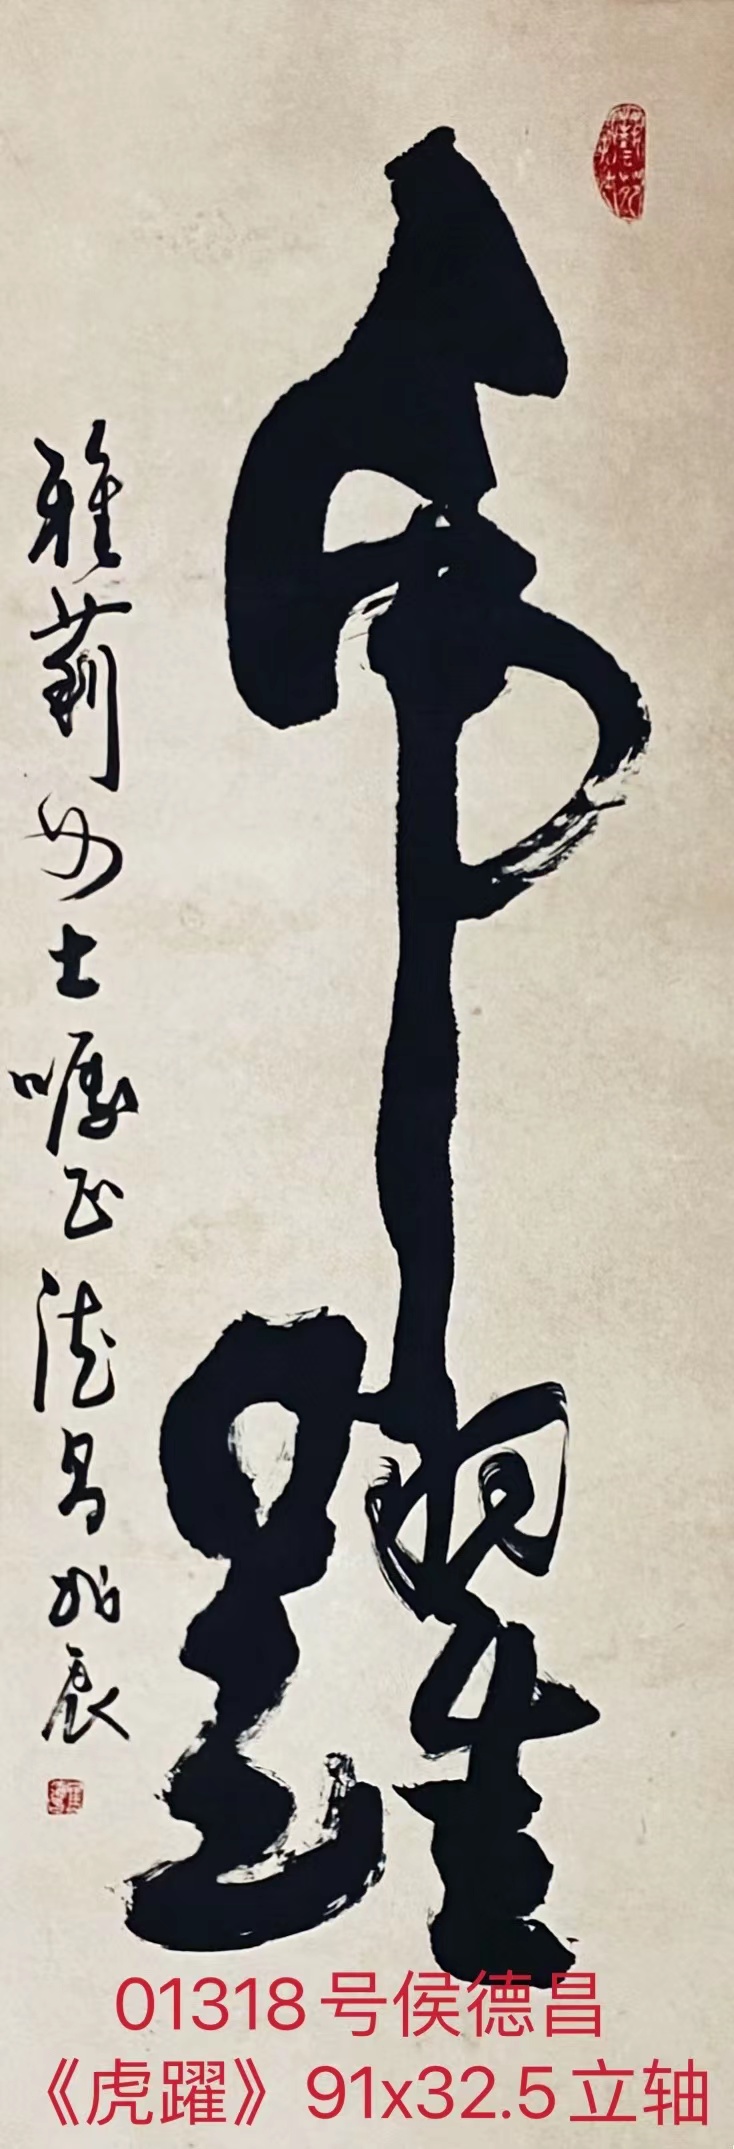 虎躍
雅莉女士嘱正 德昌 戊辰
01318号侯德昌
《虎躍》91x32.5立轴